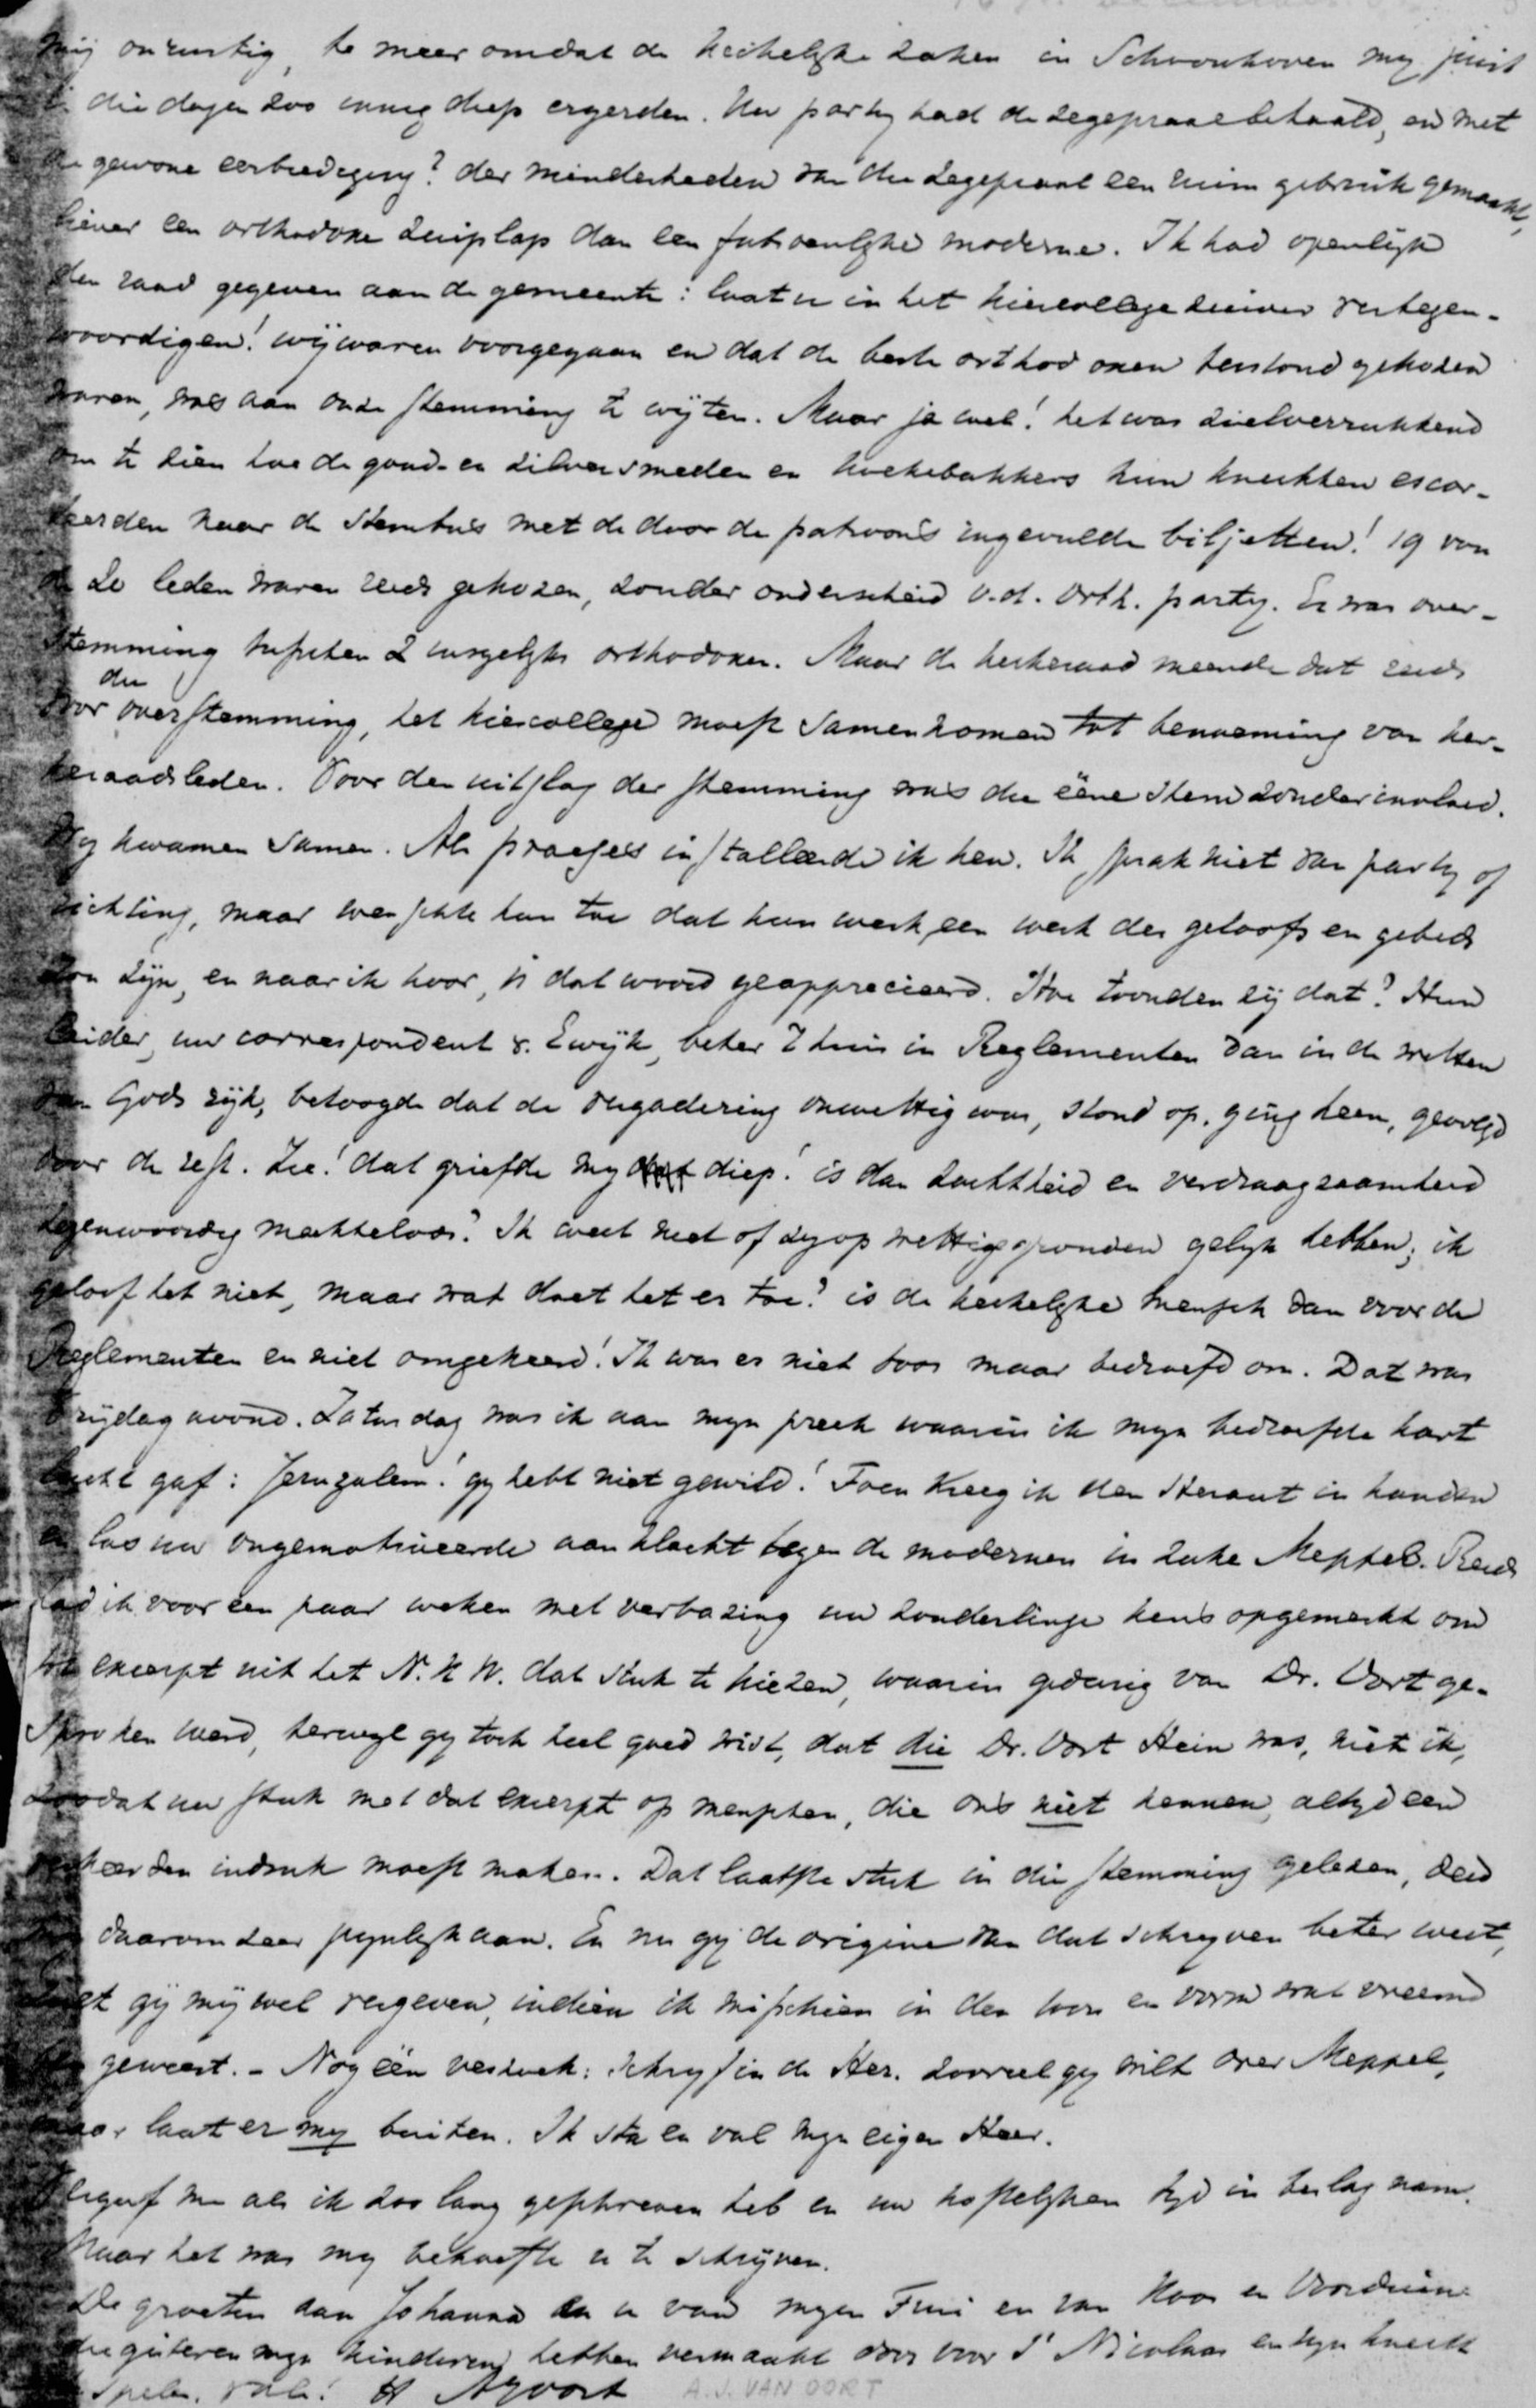 mij onrustig, te meer omdat de kerkelijke zaken in Schoonhoven mij juist
in die dagen zoo innig diep ergerden. Uw partij had de zegepraal behaald, en met
de gewone eerbiediging? der minderheden van die zegepraal een ruim gebruik gemaakt,
liever een orthodoxe zuiplap dan een fatsoenlijke moderne. Ik had openlijk
den raad gegeven aan de gemeente: laat u in het kiescollege zuiver vertegen-
woordigen! wij waren voorgegaan en dat de beste orthodoxen terstond gekozen
waren, was aan onze stemming te wijten. Maar ja wel! het was zielverrukkend
om te zien hoe de goud- en zilversmeden en koekebakkers hun knechten escor-
teerden naar de stembus met de door de patroons ingevulde biljetten! 19 van
de 20 leden waren reeds gekozen, zonder onderscheid v.d. orth. partij. Er was over-
stemming tusschen 2 insgelijks orthodoxen. Maar de kerkeraad meende dat reeds
die
voor overstemming, het kiescollege moest samenkomen tot benoeming van ker-
keraadsleden. Voor den uitslag der stemming was die ééne stem zonder invloed.
Wij kwamen samen. Als praeses installeerde ik hen. Ik sprak niet van partij of
richting, maar wenschte hun toe dat hun werk een werk des geloofs en gebeds
zou zijn, en naar ik hoor, is dat woord geapprecieerd. Hoe toonden zij dat? Hun
leider, uw correspondent v. Ewijk, beter t huis in Reglementen dan in de wetten
van Gods rijk, betoogde dat de vergadering onwettig was, stond op, ging heen, gevolgd
door de rest. Zie! dat griefde mij diep! is dan zachtheid en verdraagzaamheid
tegenwoordig machteloos? Ik weet niet of zij op wettige gronden gelijk hebben; ik
geloof het niet, maar wat doet het er toe? is de kerkelijke mensch dan voor de
Reglementen en niet omgekeerd! Ik was er niet boos maar bedroefd om. Dat was
Vrijdag avond. Zaturdag was ik aan mijn preek waarin ik mijn bedroefde hart
lucht gaf: Jeruzalem! gij hebt niet gewild! Toen kreeg ik den Heraut in handen
en las uw ongemotiveerde aanklacht tegen de modernen in zake Meppel. Reeds
had ik voor een paar weken met verbazing uw zonderlinge keus opgemerkt om
tot excerpt uit het N. K W. dat stuk te kiezen, waarin gedurig van Dr. Oort ge-
sproken werd, terwijl gij toch heel goed wist, dat die Dr. Oort Hein was, niet ik,
zoodat uw stuk met dat excerpt op menschen, die ons niet kennen, altijd een
verkeerden indruk moest maken. Dat laatste stuk in die stemming gelezen, deed
mij daarom zeer pijnlijk aan. En nu gij de origine van dat schrijven beter weet,
moet gij mij wel vergeven, indien ik misschien in den toon en vorm wat vreemd
ben geweest. - Nog één verzoek: Schrijf in de Her. zooveel gij wilt over Meppel,
maar laat er mij buiten. Ik sta en val mijn eigen Heer.
Vergeef me als ik zoo lang geschreven heb en uw kostelijken tijd in beslag nam.
Maar het was mij behoefte u te schrijven.
De groeten aan Johanna en u van mijn Fini en van Koos en
die gisteren mijn kinderen hebben vermaakt door voor St Nicolaas en zijn knecht
te spelen. Vale! tt AJOort
A.J. VAN OORT